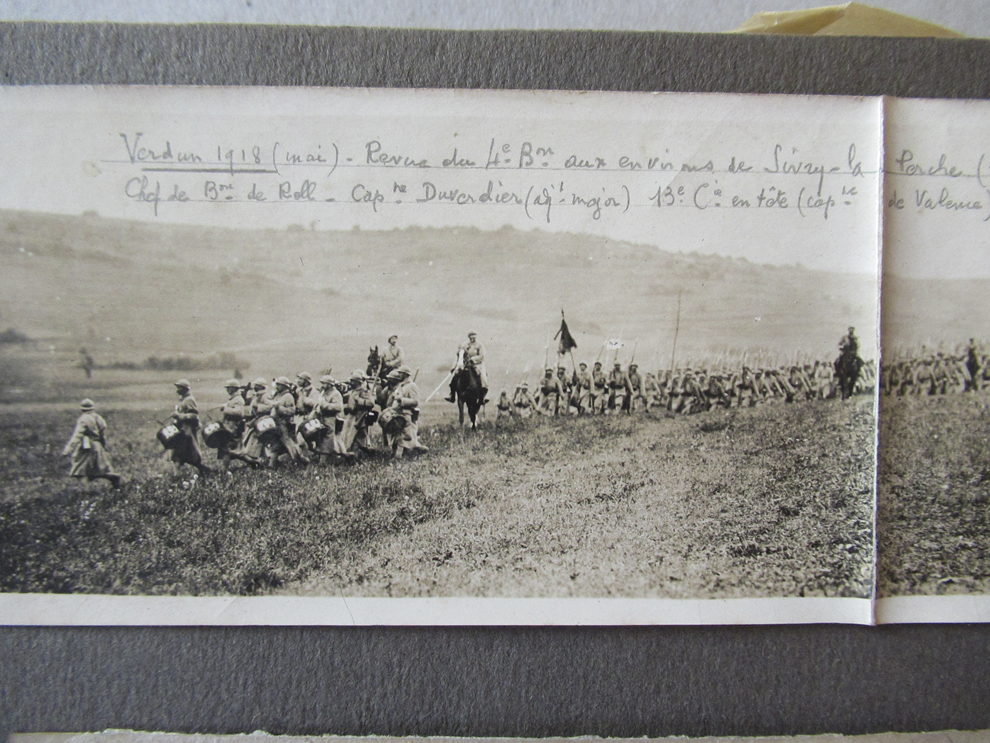 Verdun 1918 (mai) - Revue du 4e Bon aux environs de Sivry-la Perche (
Chef de Bon de Roll - Capne Duverdier (adjt major) 13e Cie en tête (capne de Valence)